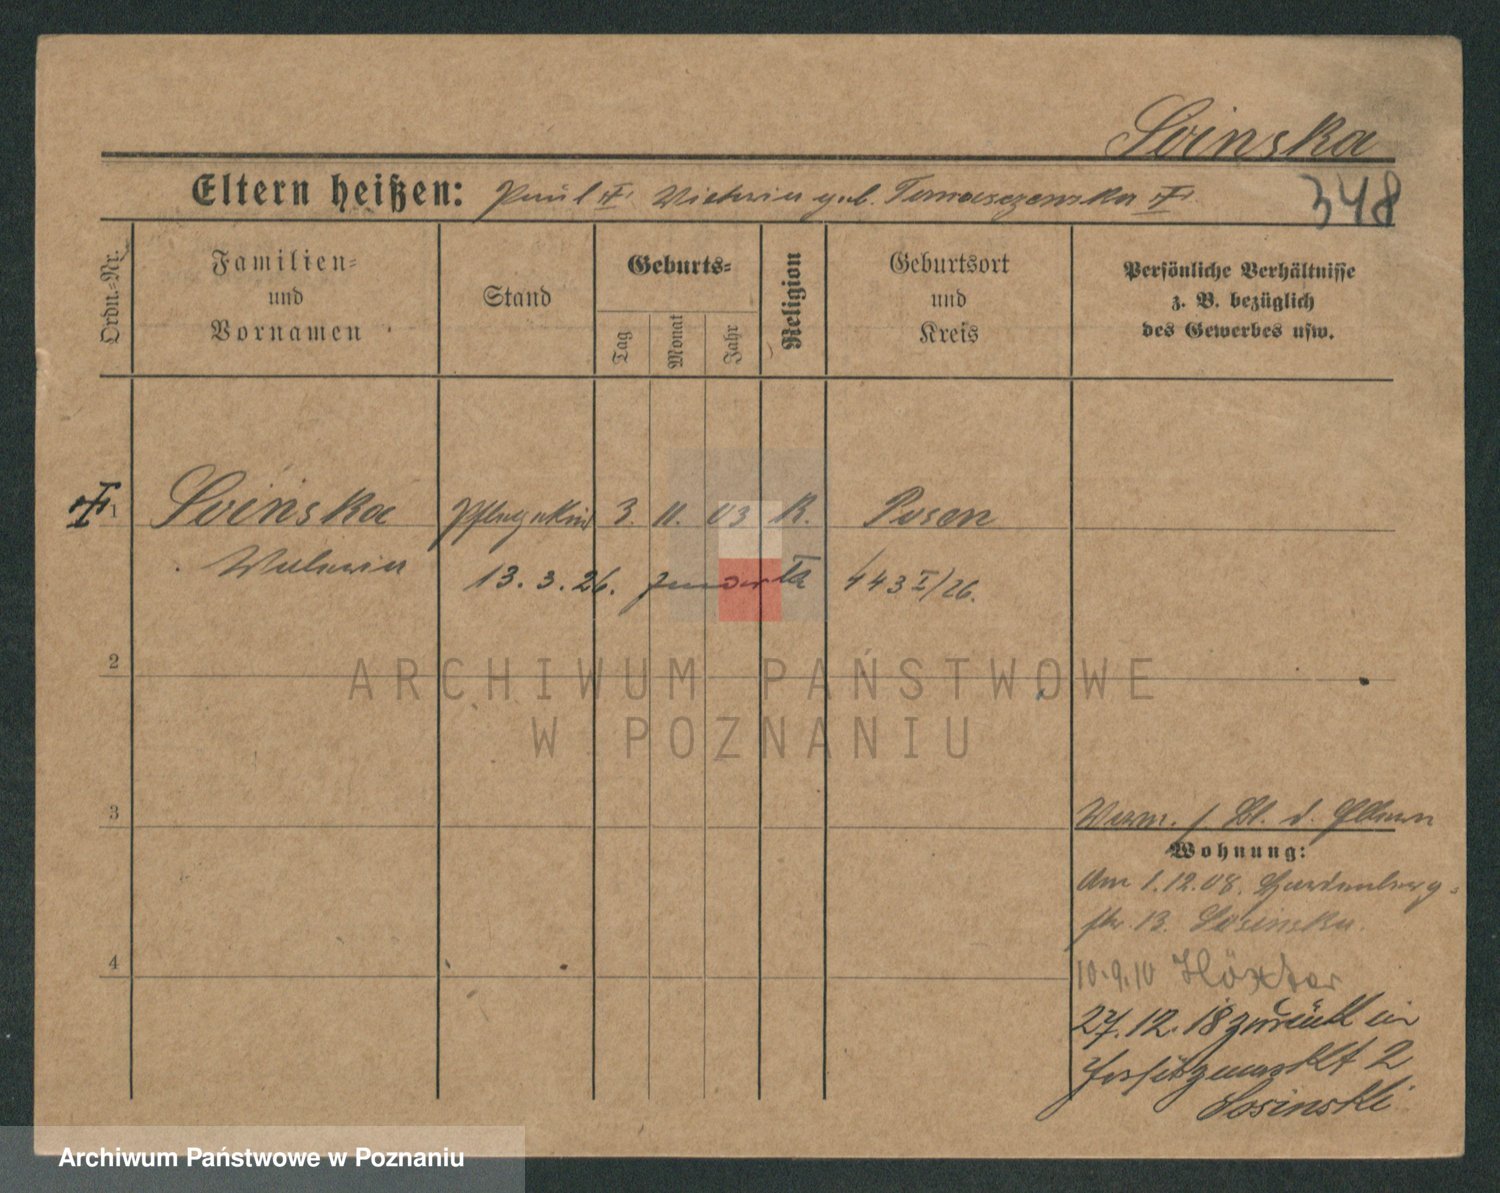 Soinska
Eltern heißen: Paul Wictoria geb. Tomaszewska
348
Ordn.-Nr.
Familien-
und
Vornamen
Stand
Geburts-
Tag
Monat
Jahr
Religion
Geburtsort
und
Kreis
Persönliche Verhältnisse
z. B. bezüglich
des Gewerbes usw.
1 Soinska Pflegekind 3. 11. 03 K. Posen
13. 3. 26. 443 I/26.
2
ARCHIWUM PAŃSTWOWE
W POZNANIU
3
d. Eltern
Wohnung:
Am 1.12.08. Hardenberg-
str. 13. Sosinska.
4
10.9.10 Höxter
27.12.18 zurück in
2
Sosinski
Archiwum Państwowe w Poznaniu